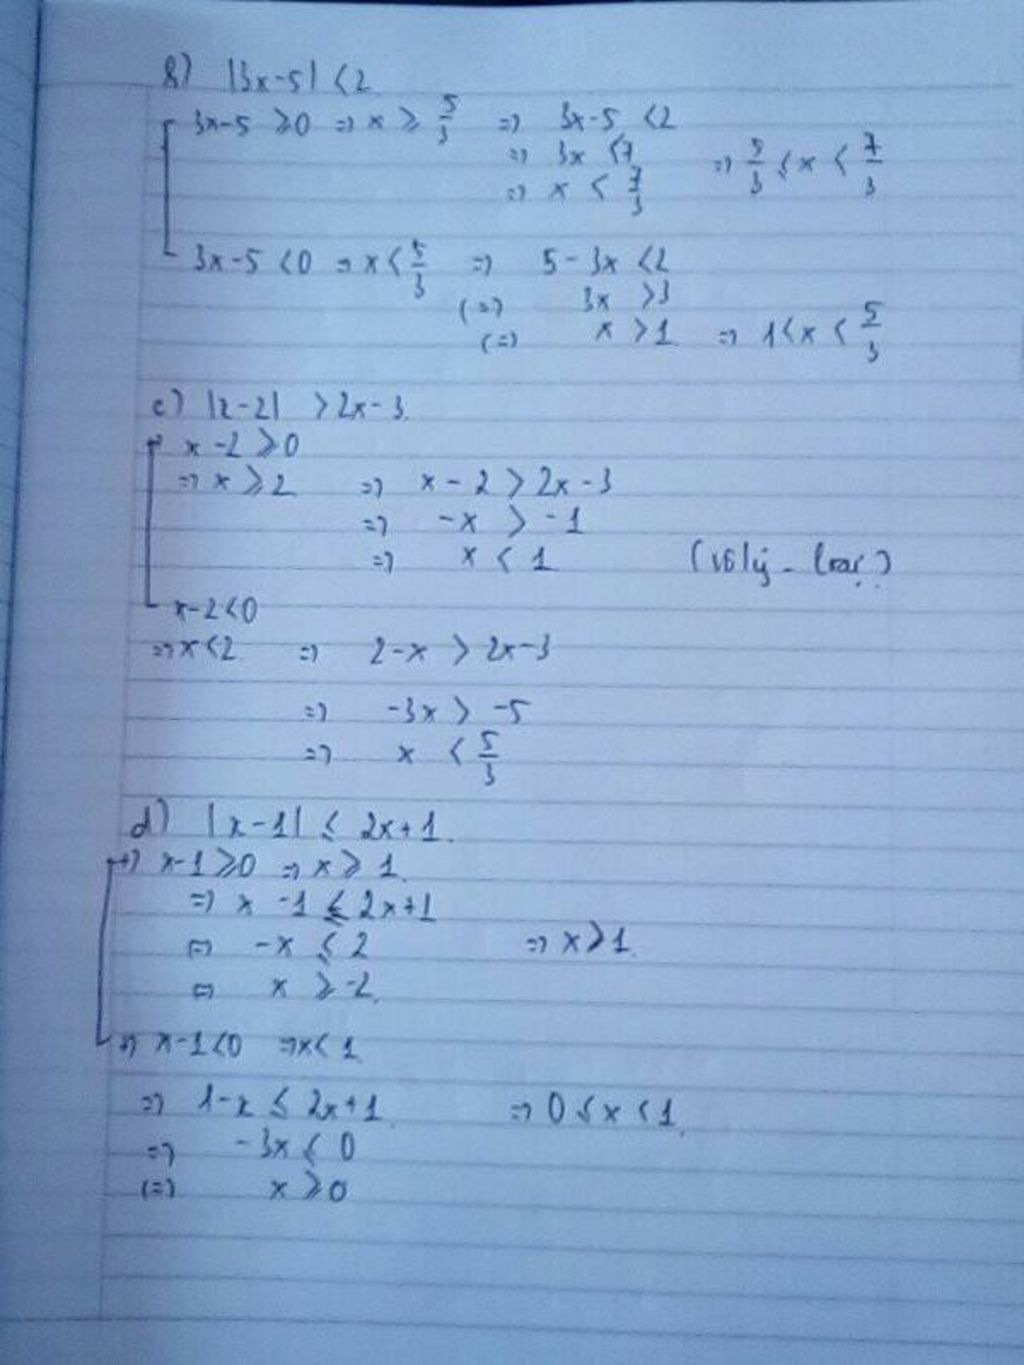 b) |3x-5| < 2
3x-5 ≥ 0 => x ≥ 5/3 => 3x-5 < 2
=> 3x < 7 => 5/3 ≤ x < 7/3
=> x < 7/3
3x-5 < 0 => x < 5/3 => 5-3x < 2
(=) 3x > 3
(=) x > 1 => 1 < x < 5/3
c) |x-2| > 2x-3.
x-2 ≥ 0
=> x ≥ 2 => x-2 > 2x-3
=> -x > -1
=> x < 1 (vô lý - loại)
x-2 < 0
=> x < 2 => 2-x > 2x-3
=> -3x > -5
=> x < 5/3
d) |x-1| ≤ 2x+1.
+) x-1 ≥ 0 => x ≥ 1.
=> x-1 ≤ 2x+1
(=) -x ≤ 2 => x ≥ 1.
(=) x ≥ -2.
+) x-1 < 0 => x < 1
=> 1-x ≤ 2x+1. => 0 ≤ x < 1.
=> -3x ≤ 0
(=) x ≥ 0